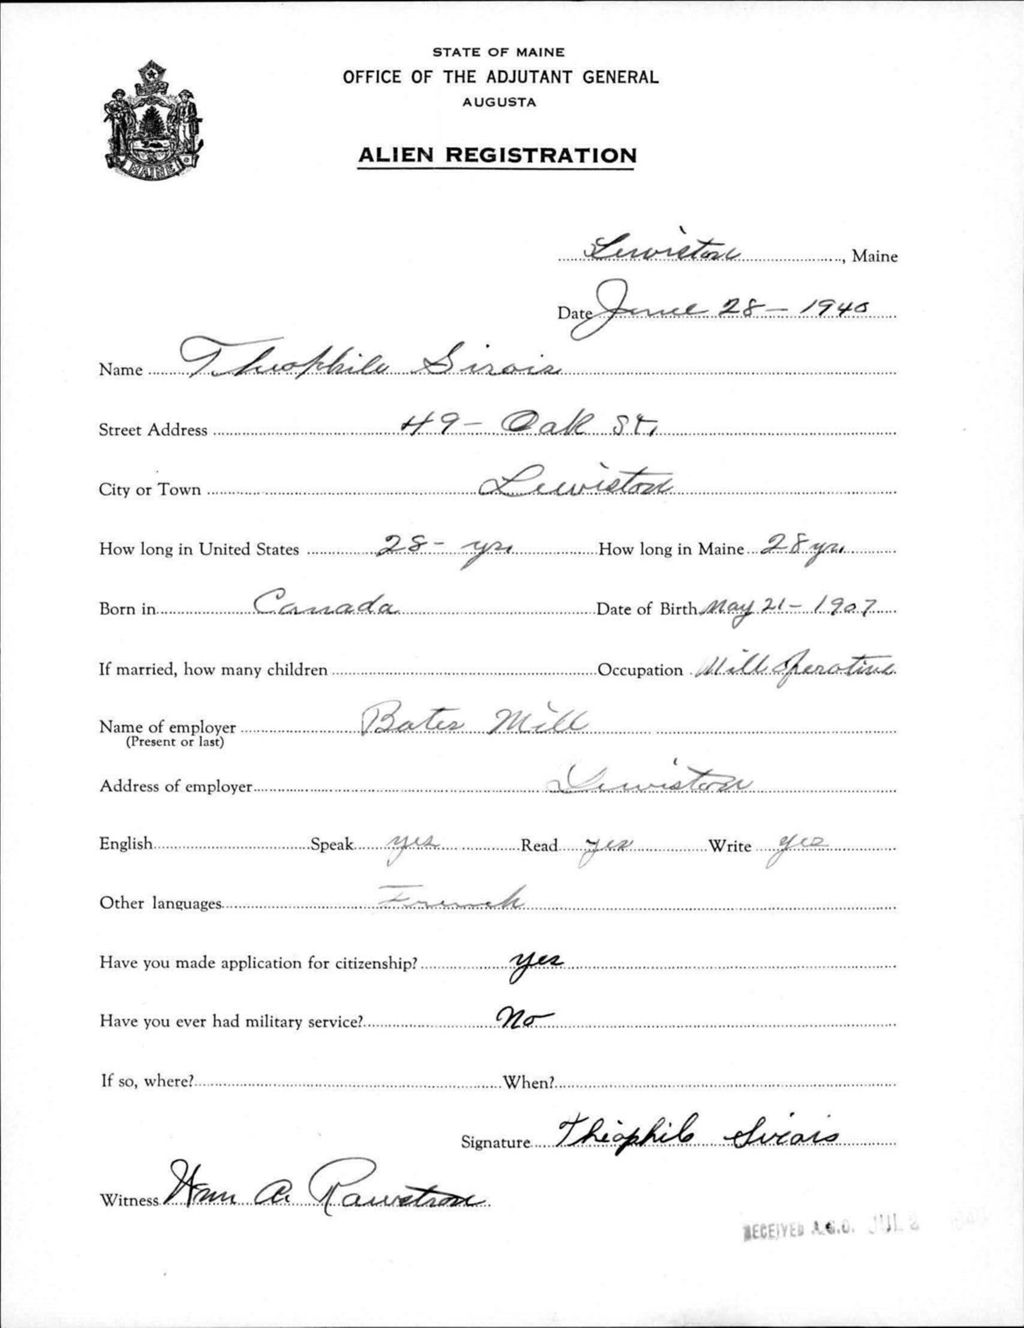 STATE OF MAINE
OFFICE OF THE ADJUTANT GENERAL
AUGUSTA
ALIEN REGISTRATION
MAINE
Lewiston, Maine
Date June 28 - 1940
Name Theophile Sirois
Street Address 49 - Oak St.
City or Town Lewiston
How long in United States 28 - yrs. How long in Maine 28 yrs.
Born in Canada Date of Birth May 21 - 1907
If married, how many children Occupation Mill Operative
Name of employer Bates Mill
(Present or last)
Address of employer Lewiston
English Speak yes Read yes Write yes
Other languages French
Have you made application for citizenship? yes
Have you ever had military service? No
If so, where? When?
Signature Théophile Sirois
Witness Wm A. Rawstron
RECEIVED A.G.O. JUL 2 1940